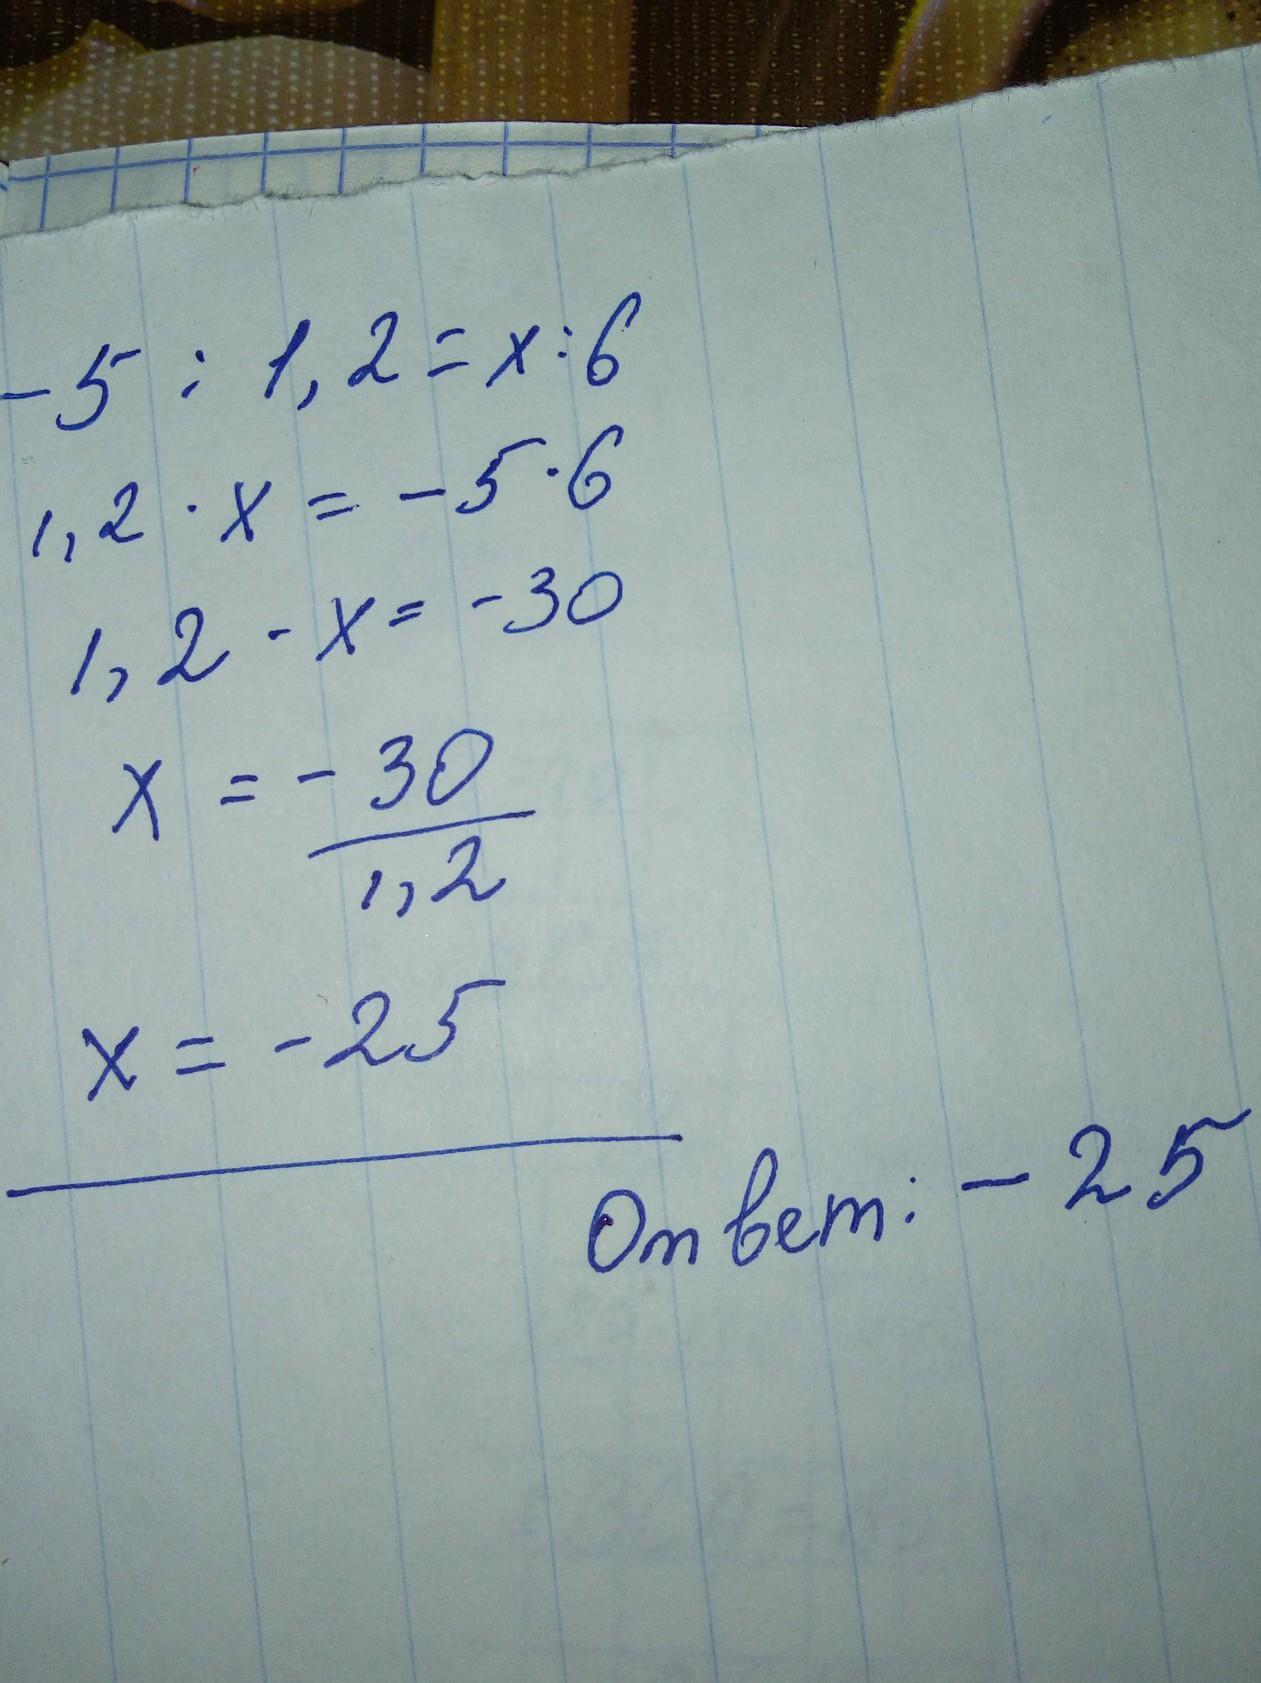 -5 : 1,2 = x : 6
1,2 · x = -5 · 6
1,2 · x = -30
x = -30
1,2
x = -25
Ответ: -25